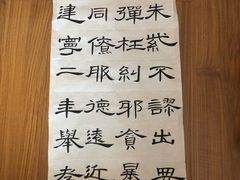 朱紫不謬出典
彈枉糾邪貪暴
同僚服德遠近
建寧二年舉孝